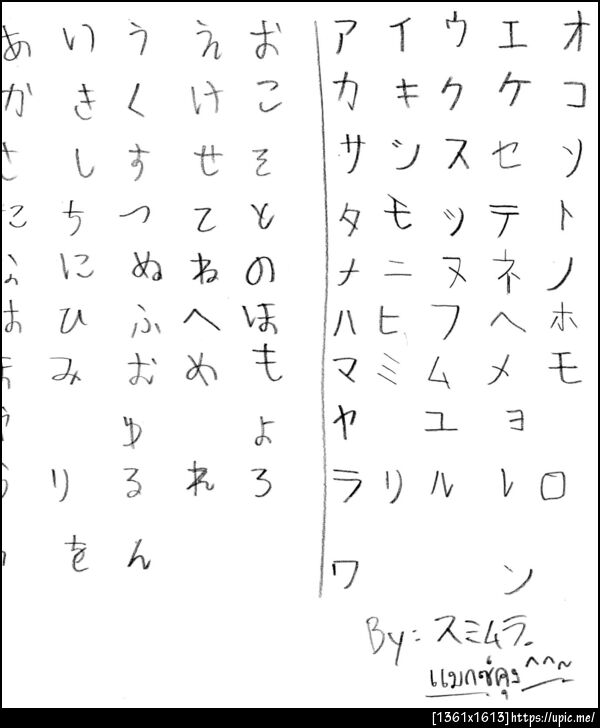 あ い う え お ア イ ウ エ オ
か き く け こ カ キ ク ケ コ
さ し す せ そ サ シ ス セ ソ
た ち つ て と タ モ ツ テ ト
に ぬ ね の ナ ニ ヌ ネ ノ
は ひ ふ へ ほ ハ ヒ フ ヘ ホ
み お め も マ ミ ム メ モ
ゆ よ ヤ ユ ヨ
り る れ ろ ラ リ ル レ ロ
を ん ワ ン
By: スミムラ.
แมกซ์คุง ^^~
[1361x1613]https://upic.me/